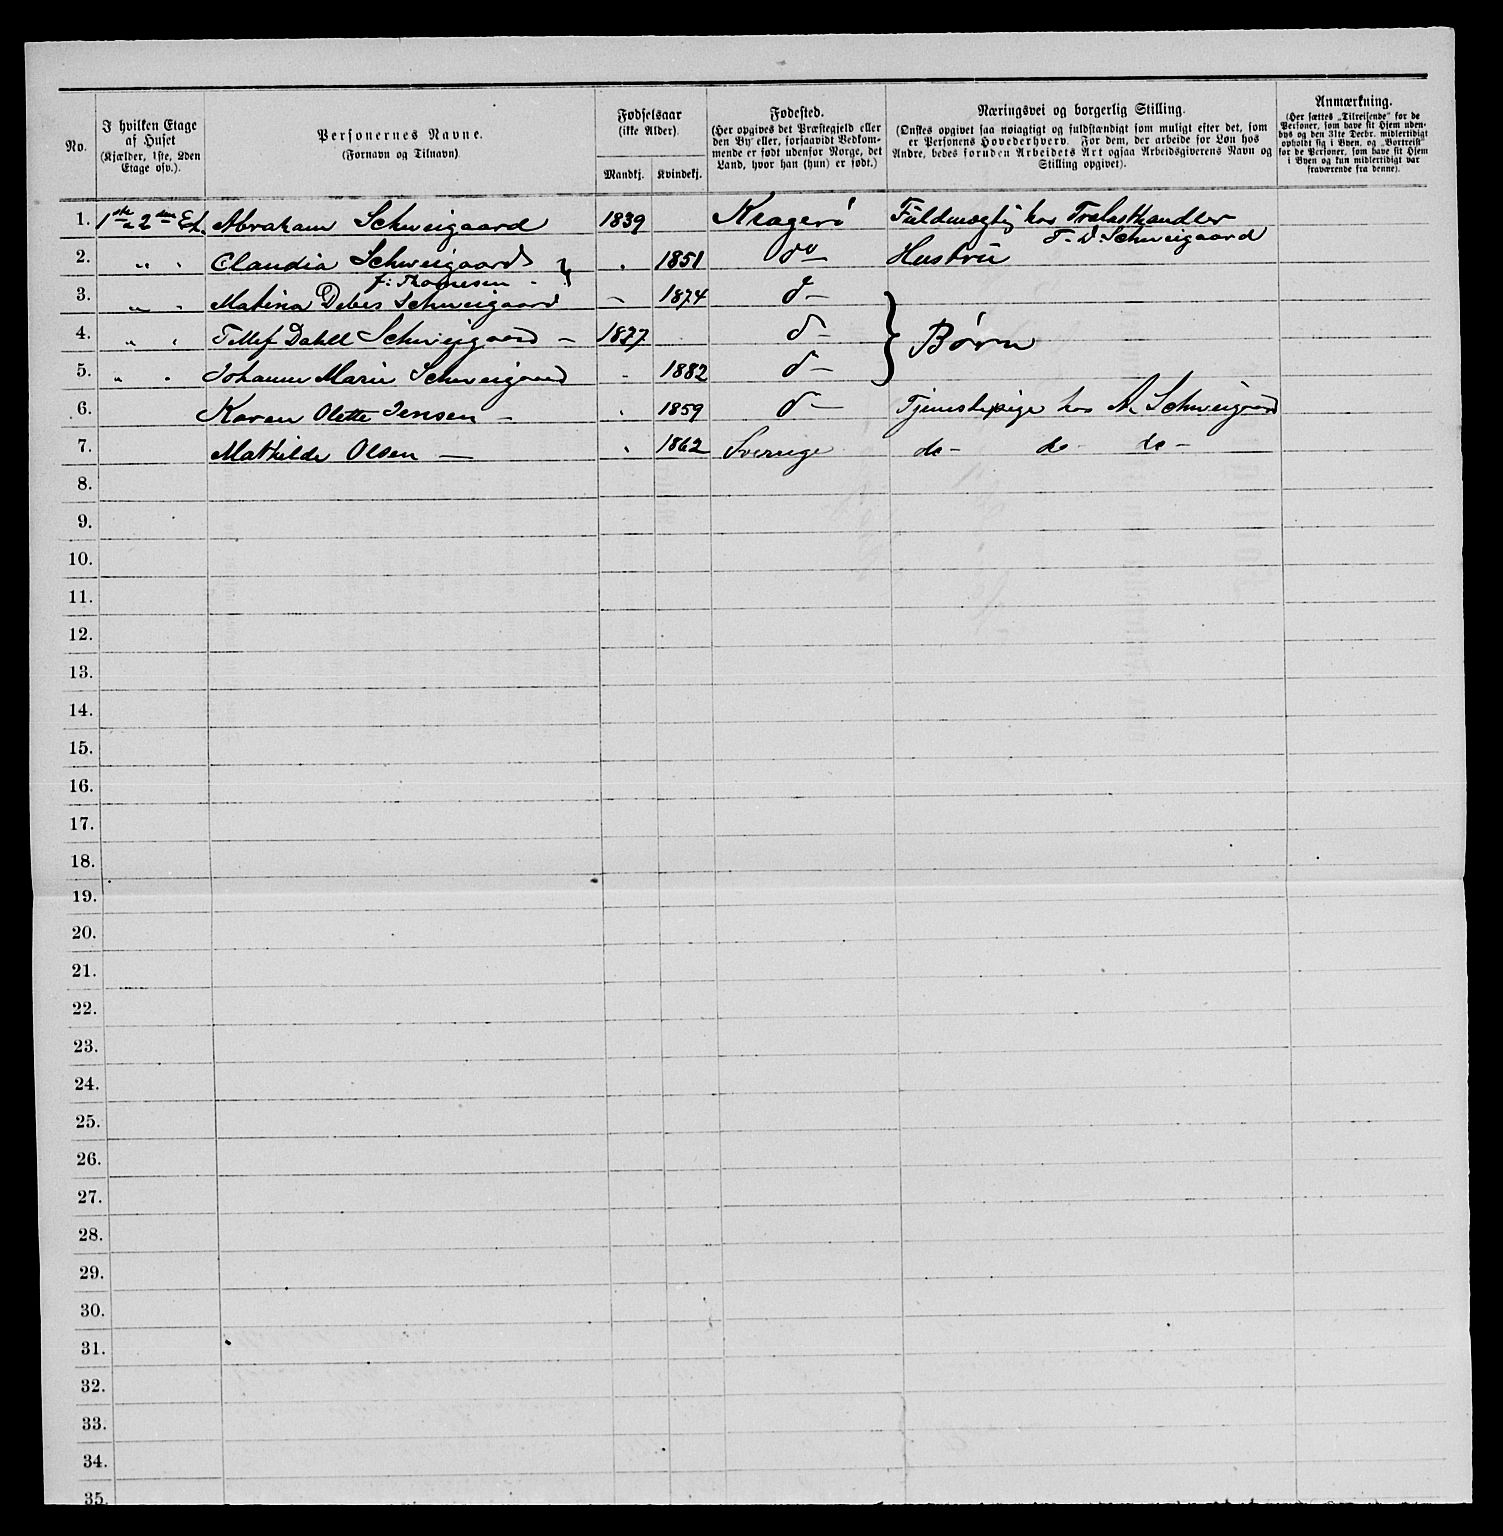 No.
I hvilken Etage af Huset
(Kjælder, 1ste, 2den Etage osv.).
Personernes Navne.
(Fornavn og Tilnavn)
Fødselsaar
(ikke Alder).
Mandkj. Kvindekj.
Fødested.
(Her opgives det Præstegjeld eller
den By eller, forsaavidt Vedkom-
mende er født udenfor Norge, det
Land, hvor han (hun) er født.)
Næringsvei og borgerlig Stilling.
(Ønskes opgivet saa nøiagtigt og fuldstændigt som muligt efter det, som
er Personens Hovederhverv. For dem, der arbeide for Løn hos
Andre, bedes foruden Arbeidets Art ogsaa Arbeidsgiverens Navn og
Stilling opgivet).
Anmærkning.
(Her sættes „Tilreisende" for de
Personer, som have sit Hjem uden-
bys og den 31te Decbr. midlertidigt
opholdt sig i Byen, og „Bortreist"
for de Personer, som have sit Hjem
i Byen og kun midlertidigt var
fraværende fra denne).
1. 1ste & 2den Et. Abraham Schweigaard 1839 Kragerö Fuldmægtig hos Trælasthandler
T. D. Schweigaard
2. " " Claudia Schweigaard 1851 do Hustru
f: Thomesen
3. " " Matina Debes Schweigaard – 1874 d –
4. " " Tellef Dahll Schweigaard – 1877 d – } Børn
5. " " Johanne Marie Schweigaard 1882 d –
6. Karen Olette Jensen – 1859 d – Tjenestepige hos A. Schweigaard
7. Mathilde Olsen — 1862 Sverrige do – do do –
8.
9.
10.
11.
12.
13.
14.
15.
16.
17.
18.
19.
20.
21.
22.
23.
24.
25.
26.
27.
28.
29.
30.
31.
32.
33.
34.
35.